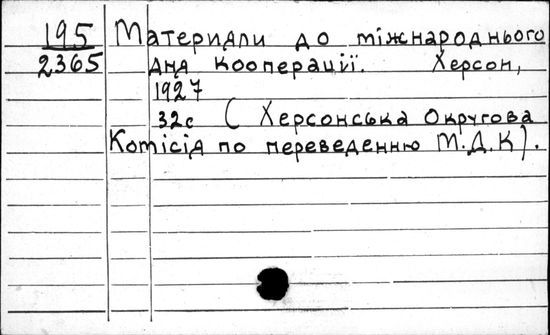 195
2365
Материяли до міжнароднього
дня кооперації. Херсон,
1927
32с (Херсонська Округова
Комісія по переведенню М.Д.К).